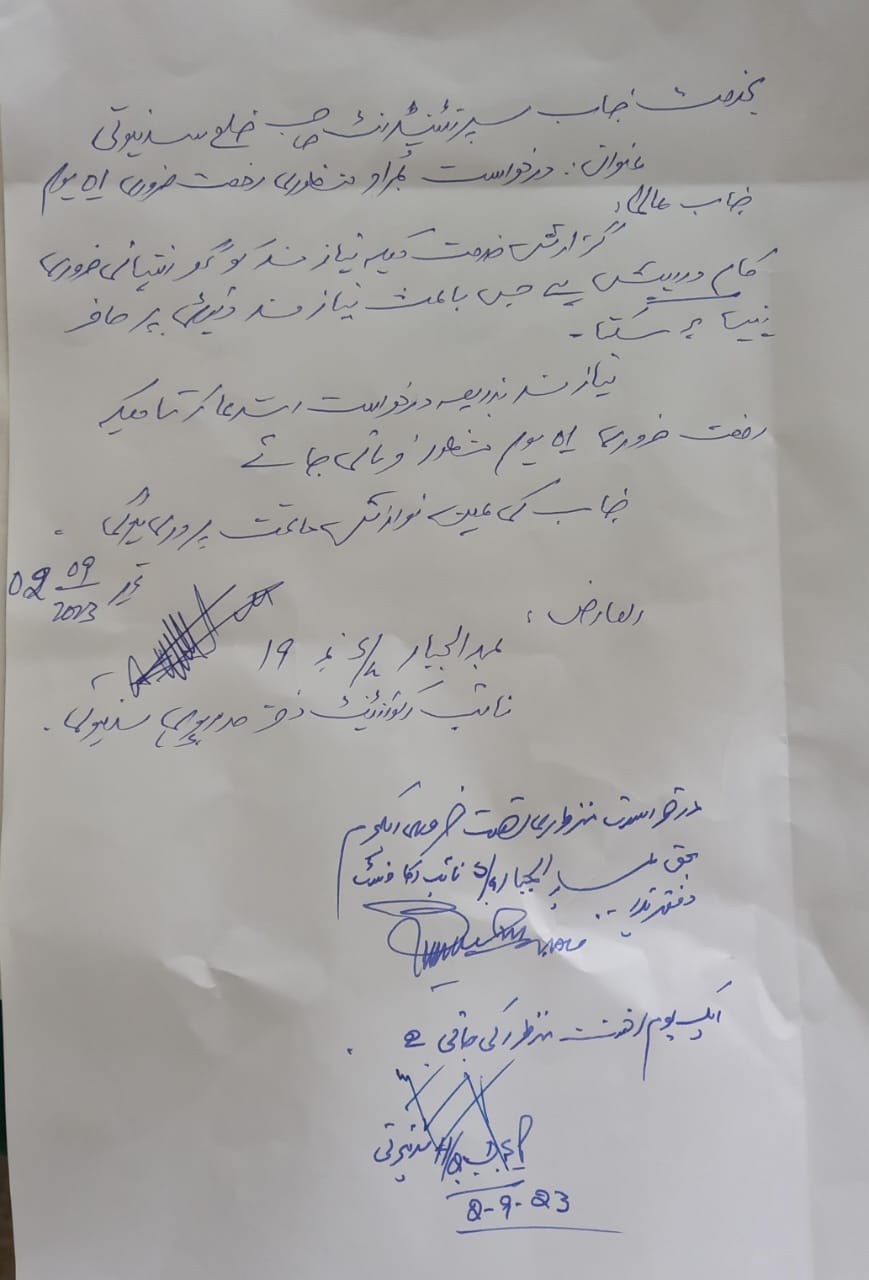 بخدمت جناب سپرنٹنڈنٹ صاحب ضلع سدھنوتی
عنوان:۔ درخواست بمراد منظوری رخصت ضروری ایک یوم
جناب عالی!
گزارش خدمت ہیکہ نیاز مند کو گھر انتہائی ضروری
کام درپیش ہے جس باعث نیاز مند ڈیوٹی پر حاضر
نہیں ہو سکتا۔
نیاز مند بذریعہ درخواست استدعا کرتا ہیکہ
رخصت ضروری ایک یوم منظور فرمائی جائے
جناب کی عین نوازش ہوگی۔
تحریر 02 09/2023
العارض؛
عبدالجبار نمبر 19
نائب دفتر سدھنوتی۔
درخواست منظوری رخصت ضروری ایک یوم
بحق عبدالجبار نائب
دفتر ہذا
ایک یوم رخصت منظور کی جاتی ہے۔
سدھنوتی
2-9-23